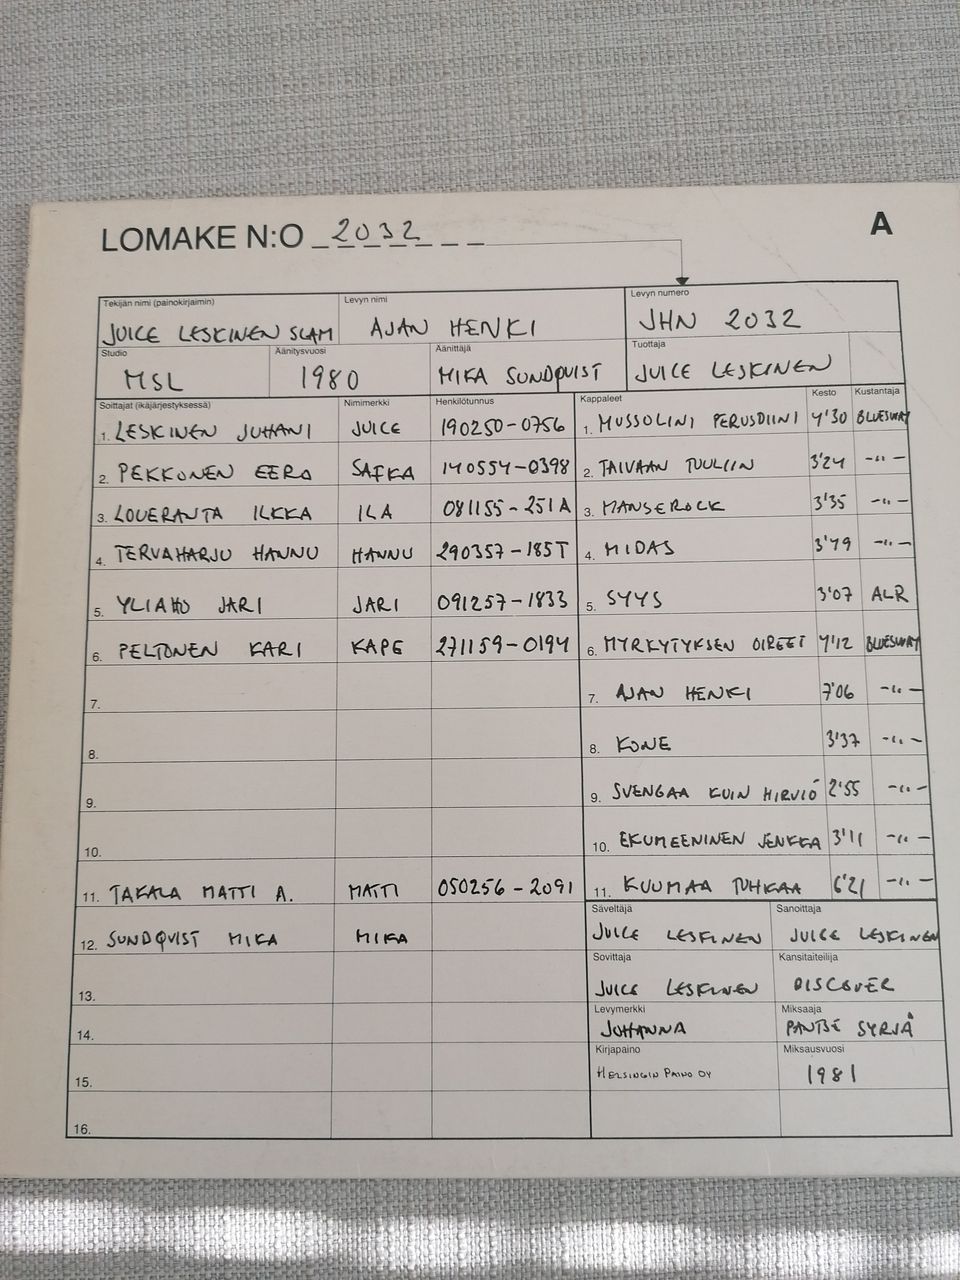 LOMAKE N:O 2032
A
Tekijän nimi (painokirjaimin) Levyn nimi Levyn numero
JUICE LESKINEN SLAM AJAN HENKI JHN 2032
Studio Äänitysvuosi Äänittäjä Tuottaja
MSL 1980 MIKA SUNDQVIST JUICE LESKINEN
Soittajat (ikäjärjestyksessä) Nimimerkki Henkilötunnus Kappaleet Kesto Kustantaja
1. LESKINEN JUHANI JUICE 190250-0756 1. MUSSOLINI PERUSDIINI 4'30 BLUESWAY
2. PEKKONEN EERO SAFKA 140554-0398 2. TAIVAAN TUULIIN 3'24 -"-
3. LOUERANTA ILKKA ILA 081155-251A 3. MANSEROCK 3'35 -"-
4. TERVAHARJU HANNU HANNU 290357-185T 4. MIDAS 3'49 -"-
5. YLIAHO JARI JARI 091257-1833 5. SYYS 3'07 ALR
6. PELTONEN KARI KAPE 271159-0194 6. MYRKYTYKSEN OIREET 4'12 BLUESWAY
7. 7. AJAN HENKI 7'06 -"-
8. 8. KONE 3'37 -"-
9. 9. SVENGAA KUIN HIRVIÖ 2'55 -"-
10. 10. EKUMEENINEN JENKKA 3'11 -"-
11. TAKALA MATTI A. MATTI 050256-2091 11. KUUMAA TUHKAA 6'21 -"-
Säveltäjä Sanoittaja
12. SUNDQVIST MIKA MIKA JUICE LESKINEN JUICE LESKINEN
Sovittaja Kansitaiteilija
13. JUICE LESKINEN DISCOVER
Levymerkki Miksaaja
14. JOHANNA PANTSE SYRJÄ
Kirjapaino Miksausvuosi
15. HELSINGIN PAINO OY 1981
16.